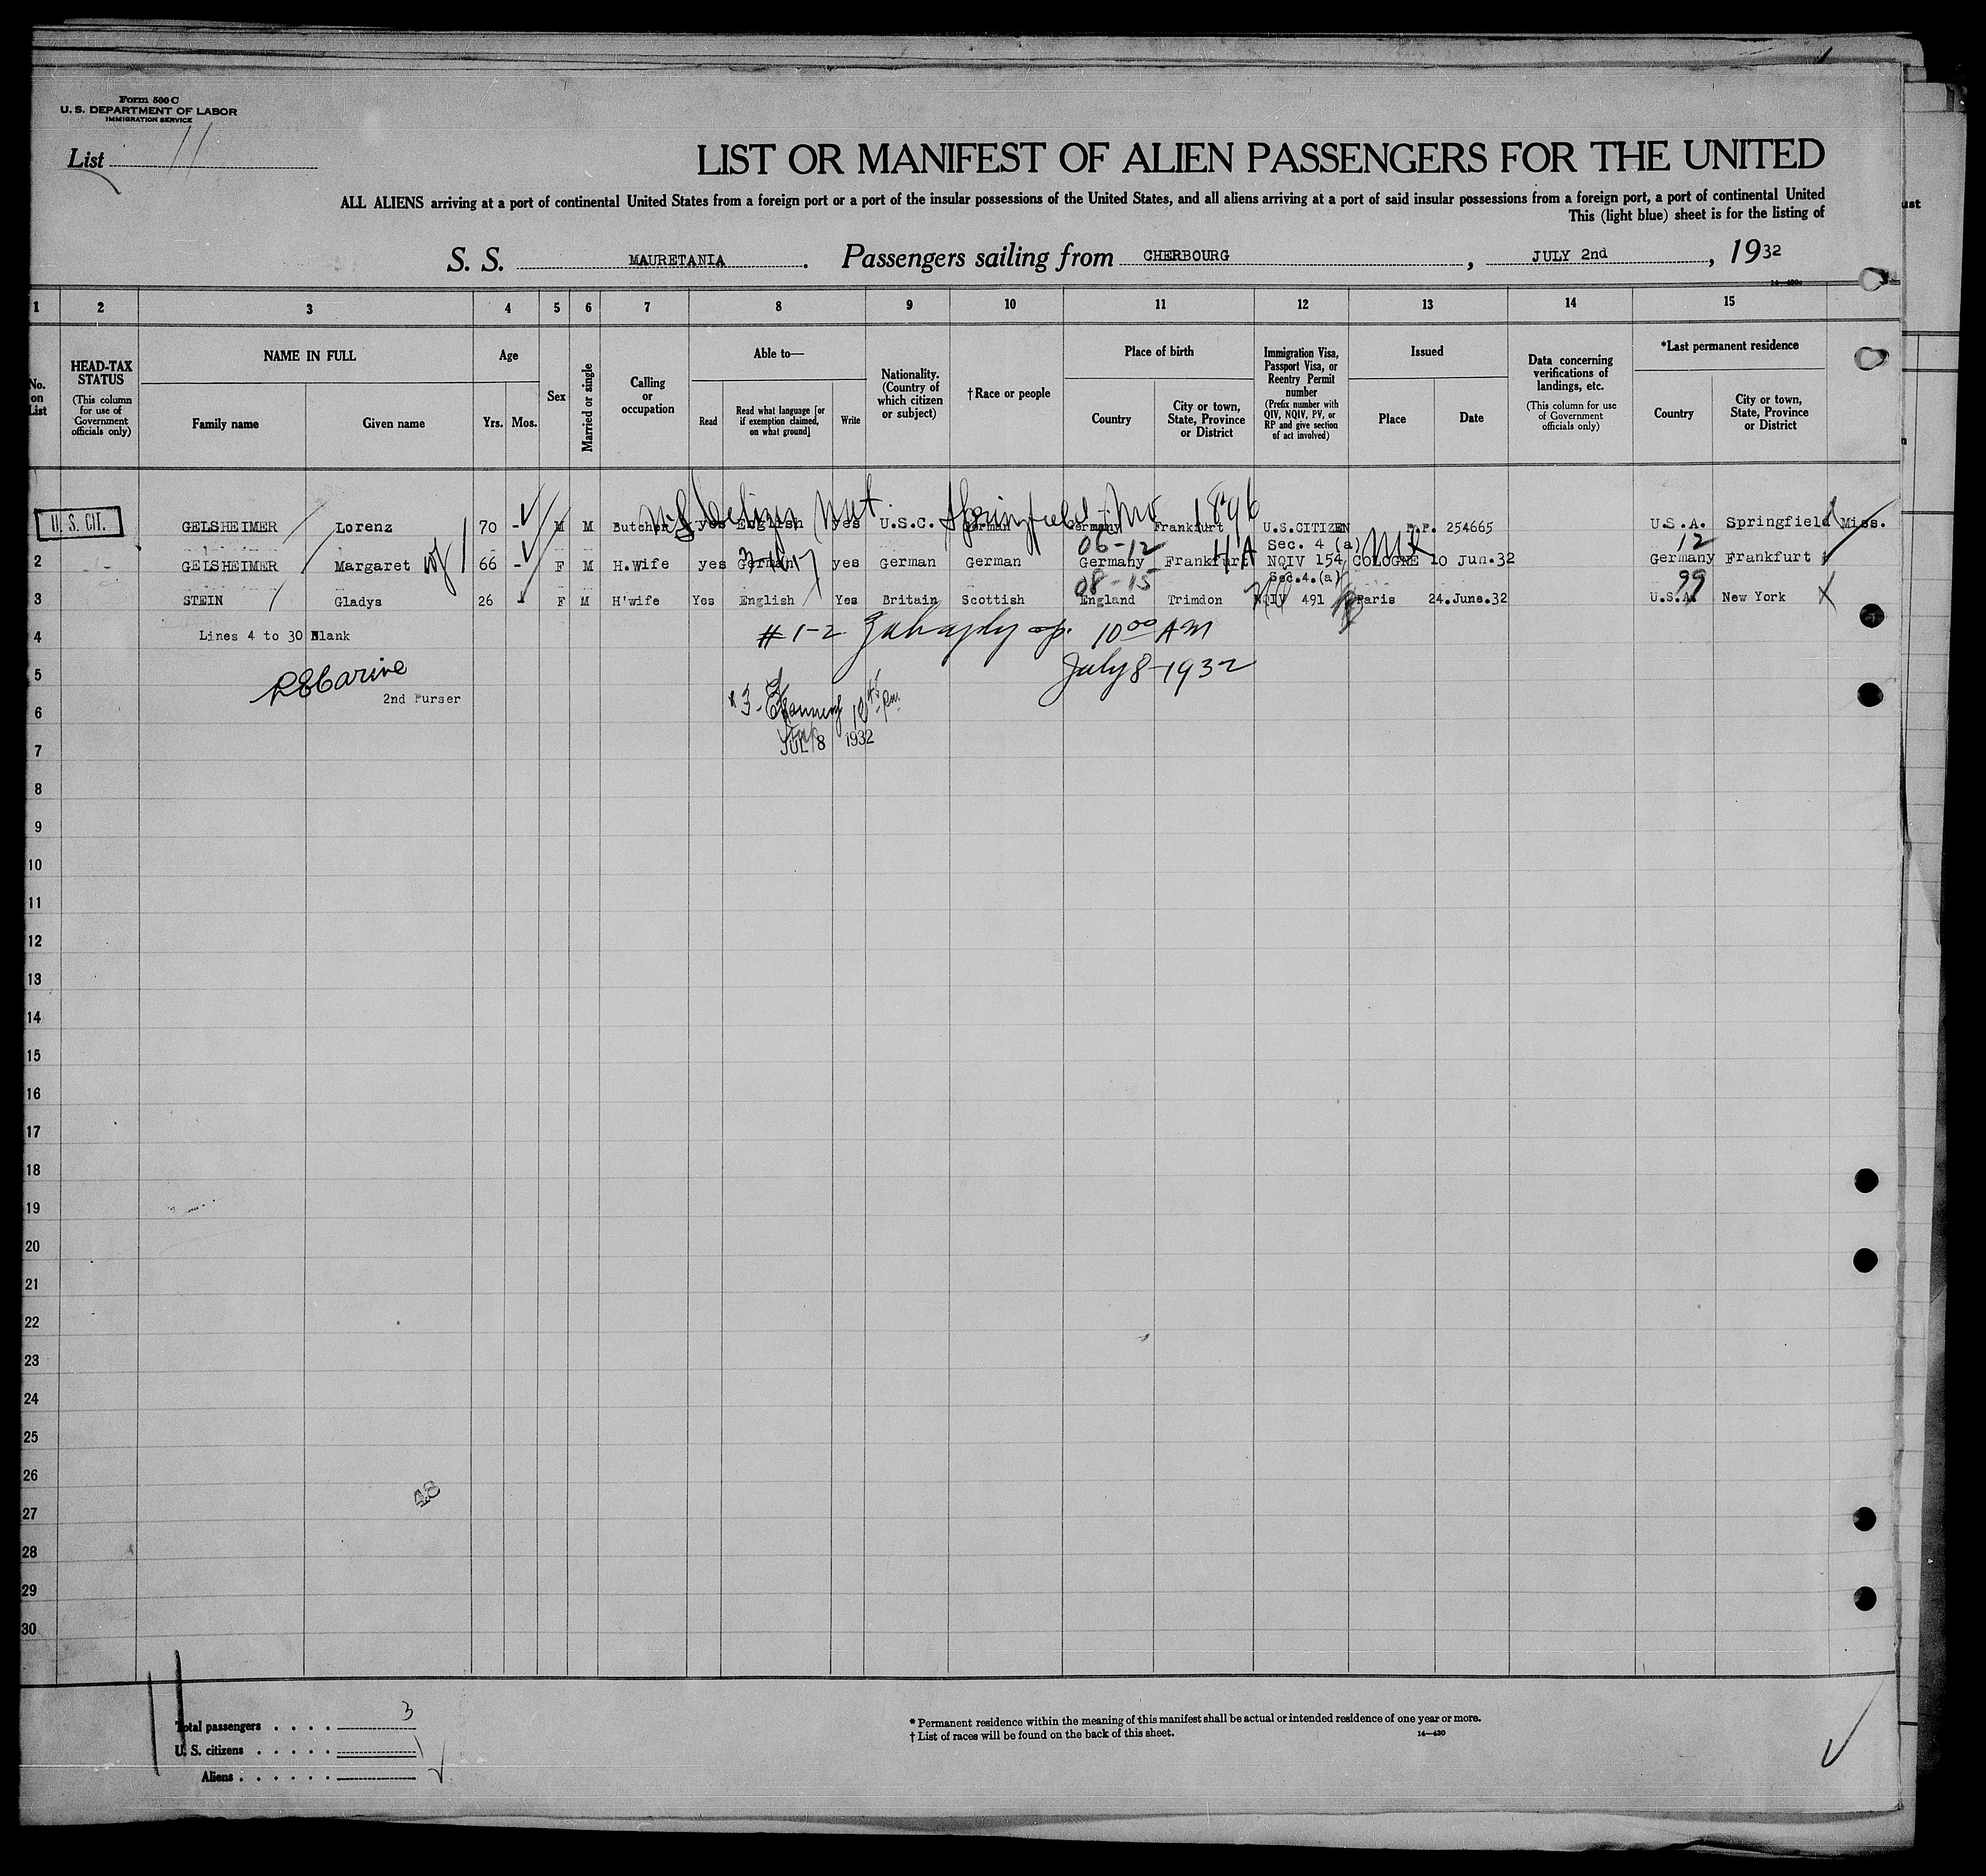 Form 500 C
U. S. DEPARTMENT OF LABOR
IMMIGRATION SERVICE
List 11
LIST OR MANIFEST OF ALIEN PASSENGERS FOR THE UNITED
ALL ALIENS arriving at a port of continental United States from a foreign port or a port of the insular possessions of the United States, and all aliens arriving at a port of said insular possessions from a foreign port, a port of continental United
This (light blue) sheet is for the listing of
S. S. MAURETANIA. Passengers sailing from CHERBOURG, JULY 2nd, 1932
1 2 3 4 5 6 7 8 9 10 11 12 13 14 15
No. on List
HEAD-TAX STATUS (This column for use of Government officials only)
NAME IN FULL
Family name
Given name
Age
Yrs. Mos.
Sex
Married or single
Calling or occupation
Able to—
Read
Read what language [or if exemption claimed, on what ground]
Write
Nationality. (Country of which citizen or subject)
†Race or people
Place of birth
Country
City or town, State, Province or District
Immigration Visa, Passport Visa, or Reentry Permit number (Prefix number with QIV, NQIV, PV, or RP and give section of act involved)
Issued
Place
Date
Data concerning verifications of landings, etc. (This column for use of Government officials only)
*Last permanent residence
Country
City or town, State, Province or District
Springfield Mo 1896
U. S. CIT. GELSHEIMER Lorenz 70 - M M Butcher yes English yes U.S.C. German Germany Frankfurt U.S.CITIZEN P.P. 254665 U.S.A. Springfield Miss.
06-12 Sec. 4 (a) 12
2 GELSHEIMER Margaret wf 66 - F M H.Wife yes German yes German German Germany Frankfurt NQIV 154 COLOGNE 10 Jun.32 Germany Frankfurt
08-15 Sec.4.(a) 99
3 STEIN Gladys 26 - F M H'wife Yes English Yes Britain Scottish England Trimdon NQIV 491 Paris 24.June.32 U.S.A. New York X
4 Lines 4 to 30 Blank #1-2 10 00 AM
5 July 8-1932
2nd Purser
6 #3- 10 45
7 JUL 8 1932
8
9
10
11
12
13
14
15
16
17
18
19
20
21
22
23
24
25
26
48
27
28
29
30
Total passengers . . . . 3
U. S. citizens . . . . .
Aliens . . . . . .
* Permanent residence within the meaning of this manifest shall be actual or intended residence of one year or more.
† List of races will be found on the back of this sheet.
14—430